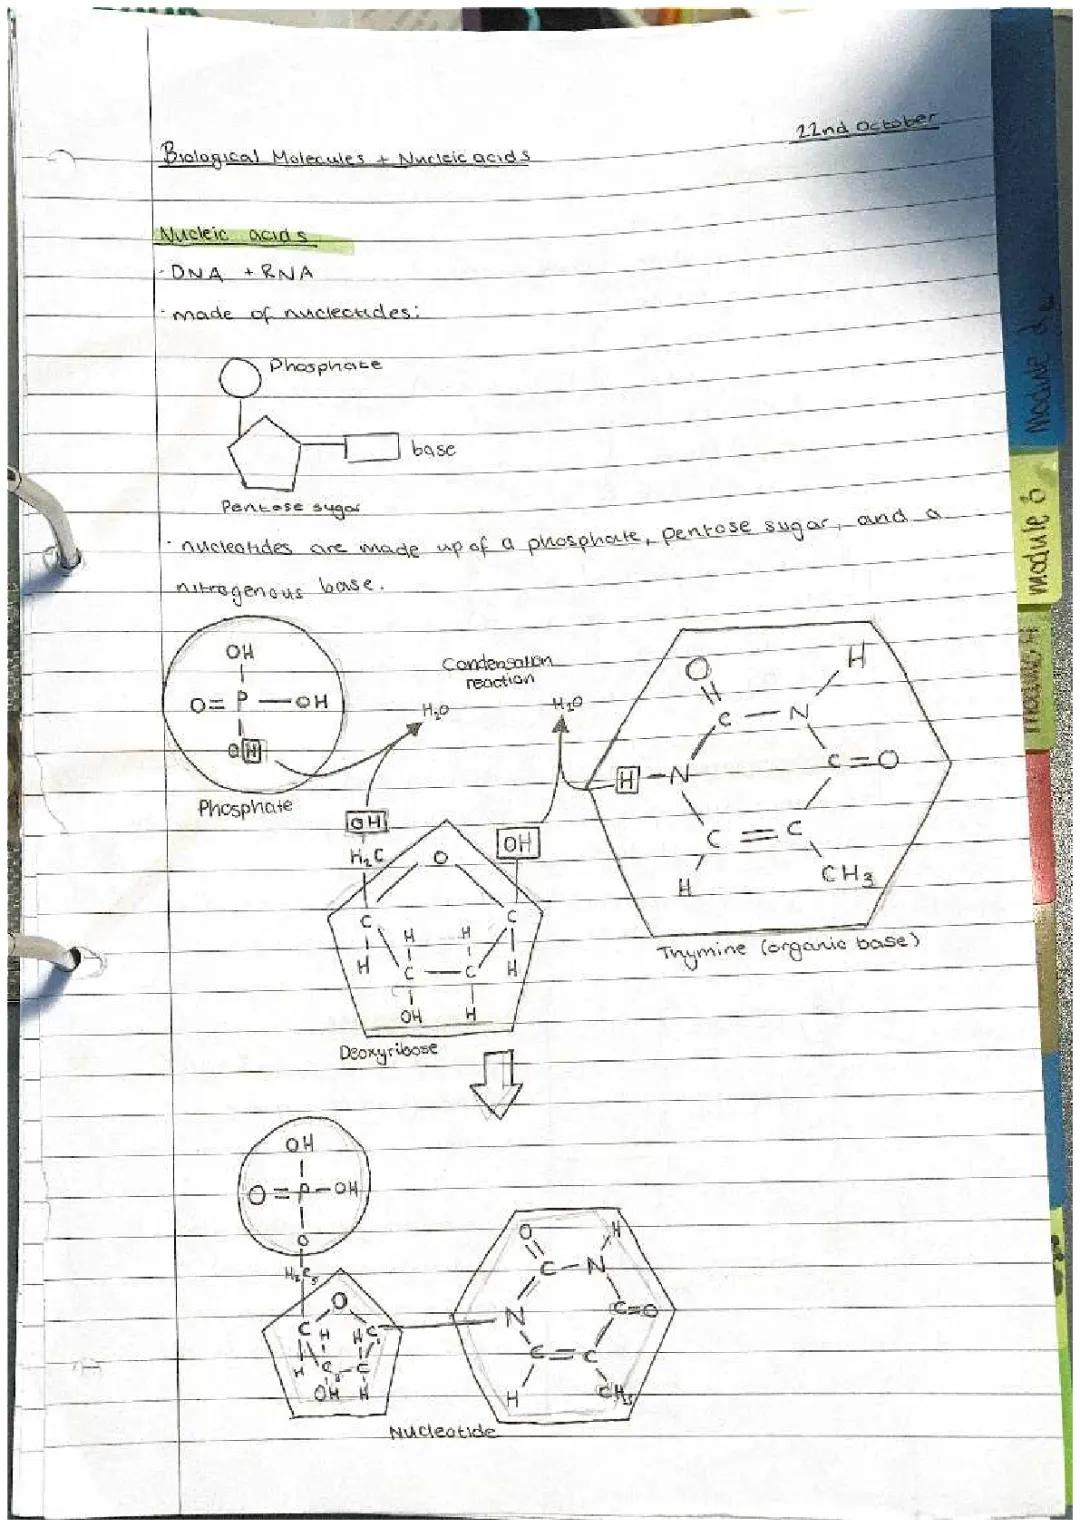 22nd October
Biological Molecules + Nucleic acids
Nucleic acids
· DNA + RNA
· made of nucleotides:
Phosphate
base
Pentose sugar
· nucleotides are made up of a phosphate, pentose sugar, and a
nitrogenous base.
OH
O=P—OH
OH
Phosphate
Condensation
reaction
H₂O
H₂O
O
H
C—N
H—N
C=O
C=C
H
CH₃
Thymine (organic base)
OH
OH
H₂C
O
C
C
H
H
H
H
C—C
OH
H
Deoxyribose
OH
O=P—OH
O
H₂C₅
O
C
C
H
H
H
C
C
OH
H
O
H
C—N
N
C=O
C=C
H
CH₃
Nucleotide
module 3
module 4